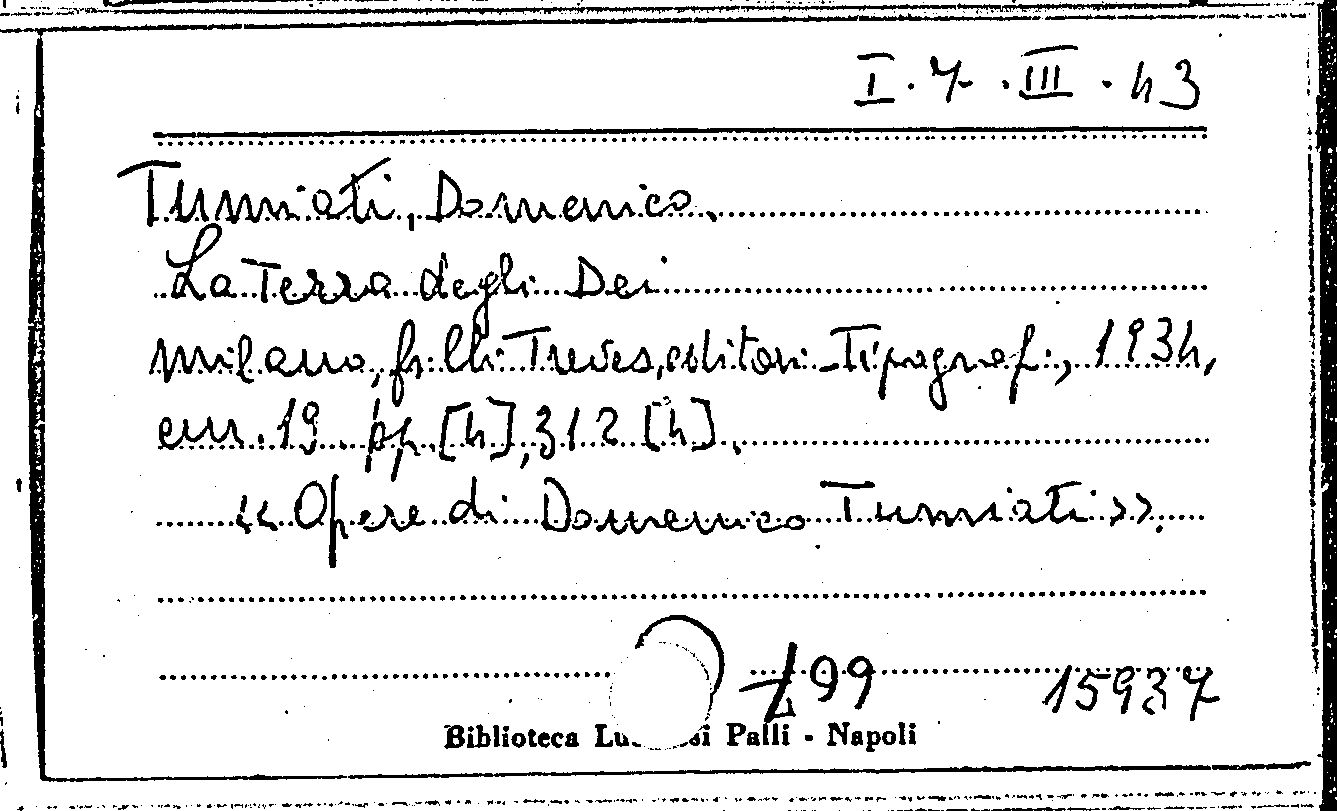 I.7.III.43
Tumiati, Domenico.
La Terra degli Dei
Milano, f.lli Treves, editori-Tipografi, 1934,
cm. 19 pp [4], 312 [4].
<< Opere di Domenico Tumiati >>.
99 15937
Biblioteca Palli - Napoli